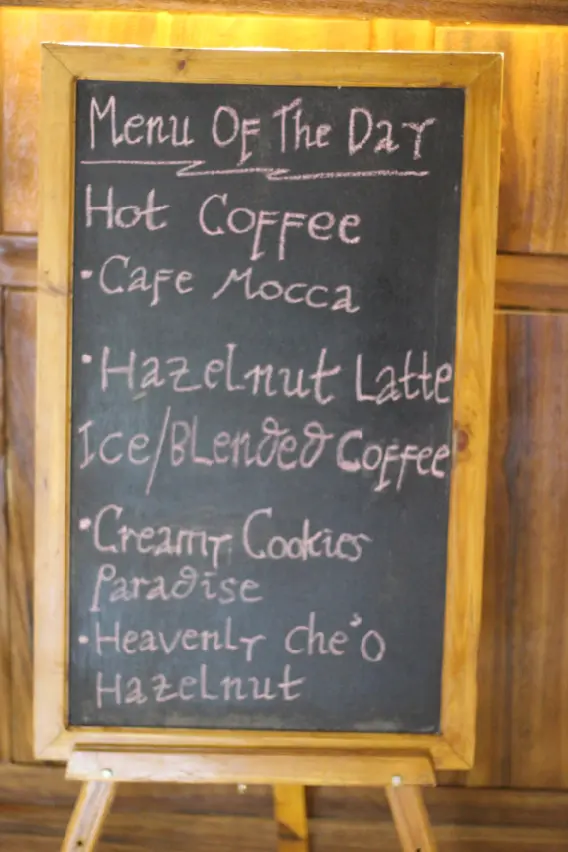 Menu Of The Day
Hot Coffee
• Cafe Mocca
• Hazelnut Latte
Ice/Blended Coffee
• Creamy Cookies
Paradise
• Heavenly Che'o
Hazelnut